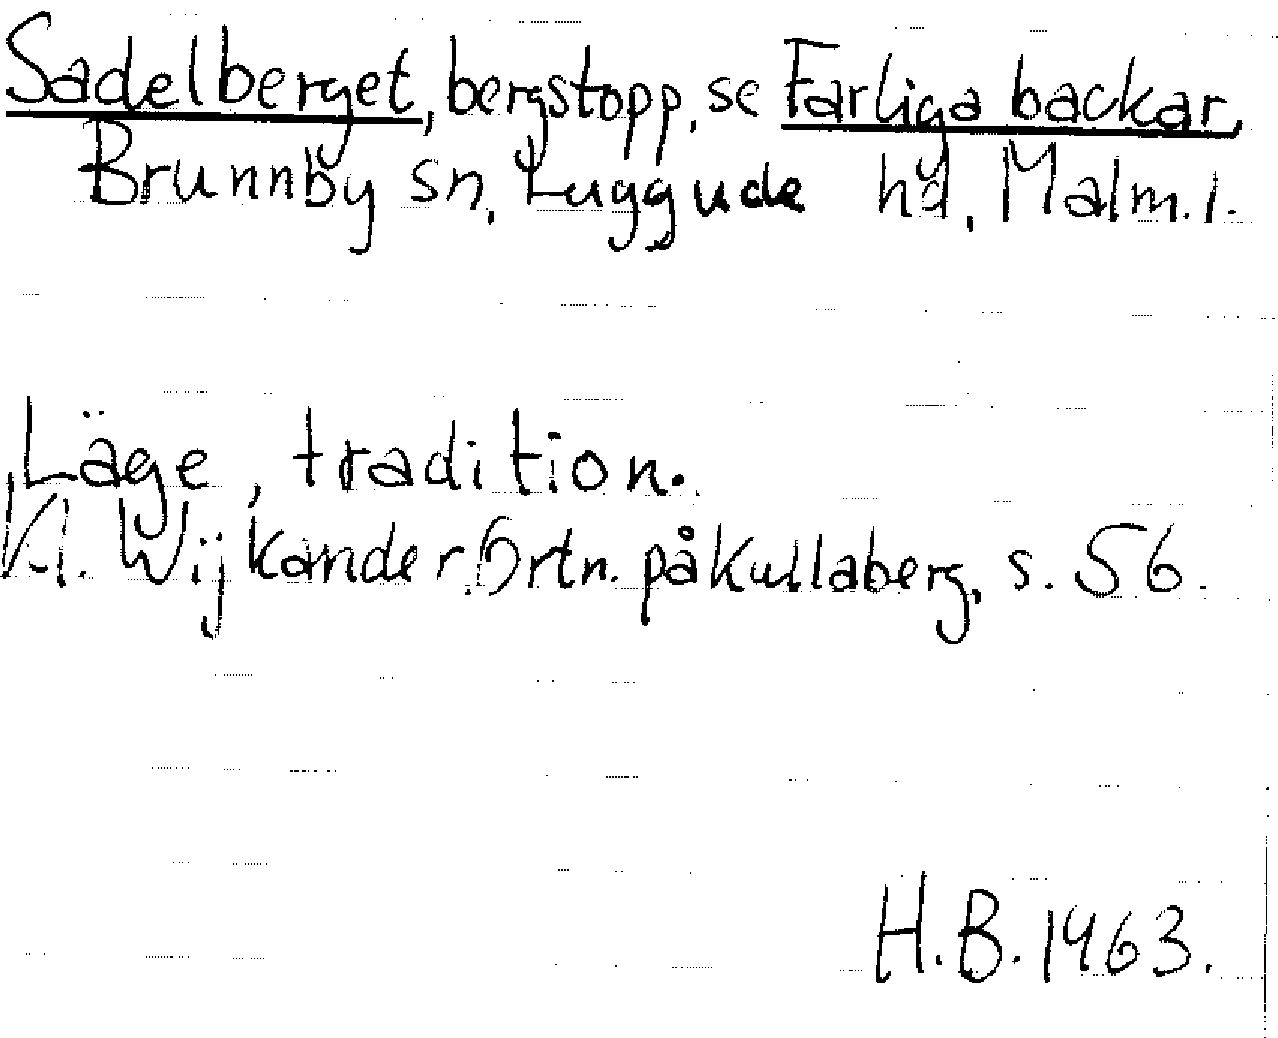 Sadelberget, bergstopp, se Farliga backar,
Brunnby sn. Luggude hd, Malm. l.
Läge, tradition.
Kl. Wijkander. Ortn. på Kullaberg, s. 56.
H.B. 1963.